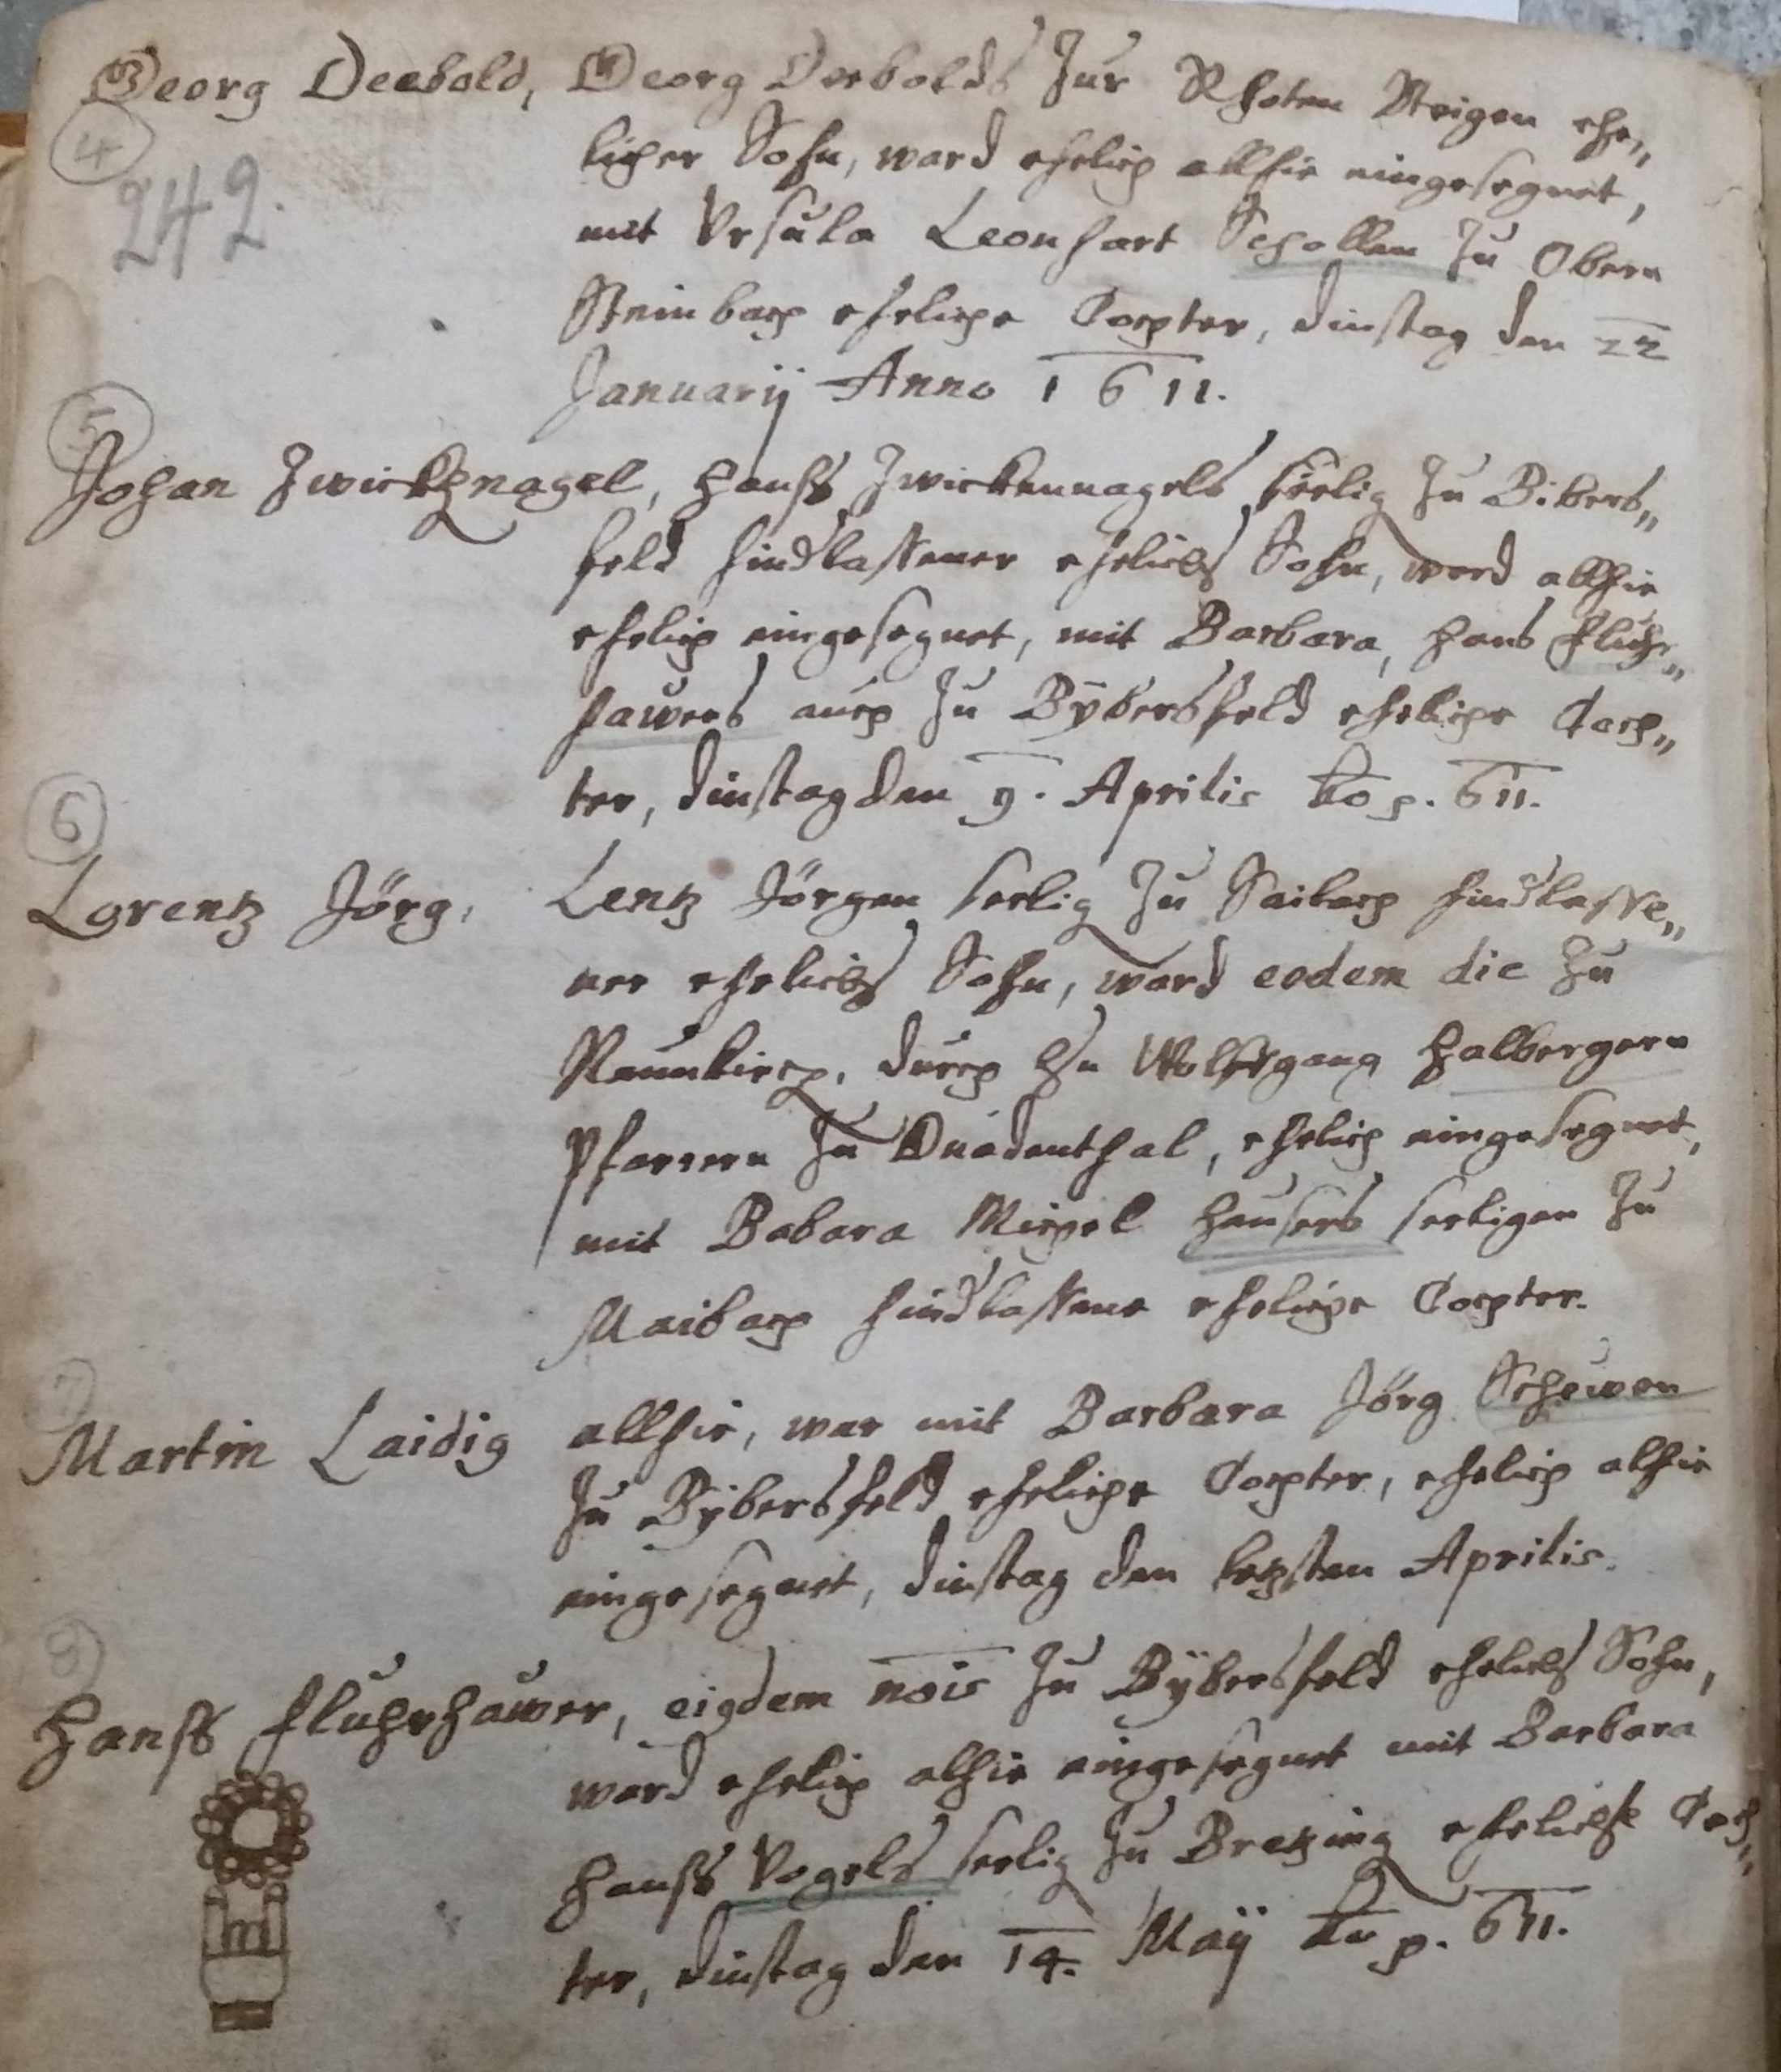 Georg Deebold, Georg Deebolds Zur Rhoten Steigen ehe„
4
licher Sohn, ward ehelich allhie eingesegnet,
242.
mit Ursula Leonhart Schollen Zu Obern
Steinbach eheliche Tochter, dinstag den 22
Januarij Anno 1611.
5
Johan Zwickhnagel, Hanss Zwickennagels seelig Zu Bibers„
feld hindlassener ehelichs Sohn, ward allhie
ehelich eingesegnet, mit Barbara, Hans Fluhr„
hawers auch Zu Bÿbersfeld eheliche Toch„
ter, dinstag den 9. Aprilis 611.
6
Lorentz Jörg, Lentz Jörgen seelig Zu Saibach hindlasse„
ner ehelichs Sohn, ward eodem die Zu
Naunkirch, durch Hn Wolffgang Halbergern
Pfarrern Zu Gnadenthal, ehelich eingesegnet,
mit Babara Michel Hausers seeligen Zu
Maibach hindlassene eheliche Tochter.
7
Martin Laidig allhie, war mit Barbara Jörg Schewen
Zu Bÿbersfeld eheliche Tochter, ehelich alhie
eingesegnet, dinstag den letzsten Aprilis.
Hanss Fluhrhawer, eigdem nois Zu Bÿbersfeld ehelichs Sohn,
ward ehelich alhie eingesegnet mit Barbara
Hanss Vogels seelig Zu Bretzing Toch„
ter, dinstag den 14. Maÿ 611.